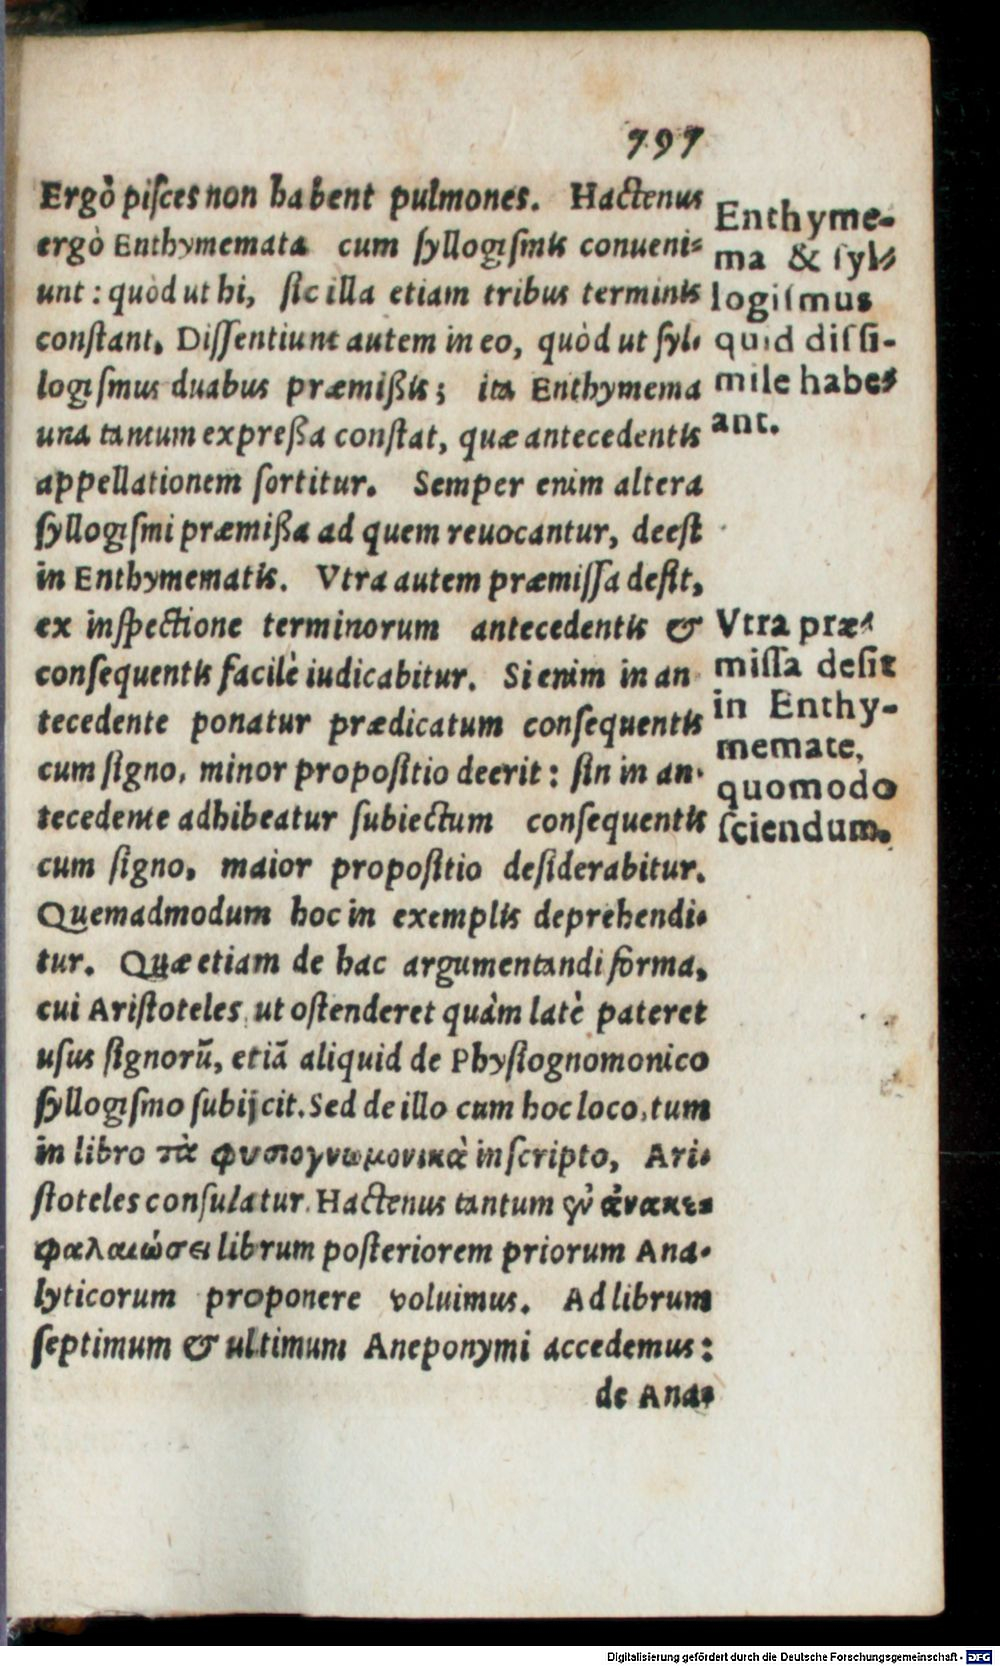 797
Ergò piſces non habent pulmones. Hactenus
ergò Enthymemata cum ſyllogiſmis conueni-
unt: quòd ut hi, ſic illa etiam tribus terminis
conſtant. Diſſentiunt autem in eo, quòd ut ſyl-
logiſmus duabus præmißis; ita Enthymema
una tantum expreßa conſtat, quæ antecedentis
appellationem ſortitur. Semper enim altera
ſyllogiſmi præmißa ad quem reuocantur, deeſt
in Enthymematis. Vtra autem præmiſſa deſit,
ex inſpectione terminorum antecedentis &
conſequentis facilè iudicabitur. Si enim in an
tecedente ponatur prædicatum conſequentis
cum ſigno, minor propoſitio deerit: ſin in an-
tecedente adhibeatur ſubiectum conſequentis
cum ſigno, maior propoſitio deſiderabitur.
Quemadmodum hoc in exemplis deprehendi-
tur. Quæ etiam de hac argumentandi forma,
cui Ariſtoteles, ut oſtenderet quàm latè pateret
uſus ſignorũ, etiã aliquid de Phyſiognomonico
ſyllogiſmo ſubijcit. Sed de illo cum hoc loco, tum
in libro τὰ φυσιογνωμονικὰ inſcripto, Ari-
ſtoteles conſulatur. Hactenus tantum ἐν ἀνακε-
φαλαιώσει librum poſteriorem priorum Ana-
lyticorum proponere voluimus. Ad librum
ſeptimum & ultimum Aneponymi accedemus:
de Ana-
Enthyme-
ma & ſyl-
logiſmus
quid diſſi-
mile habe-
ant.
Vtra præ-
miſſa deſit
in Enthy-
memate,
quomodo
ſciendum.
Digitalisierung gefördert durch die Deutsche Forschungsgemeinschaft - DFG